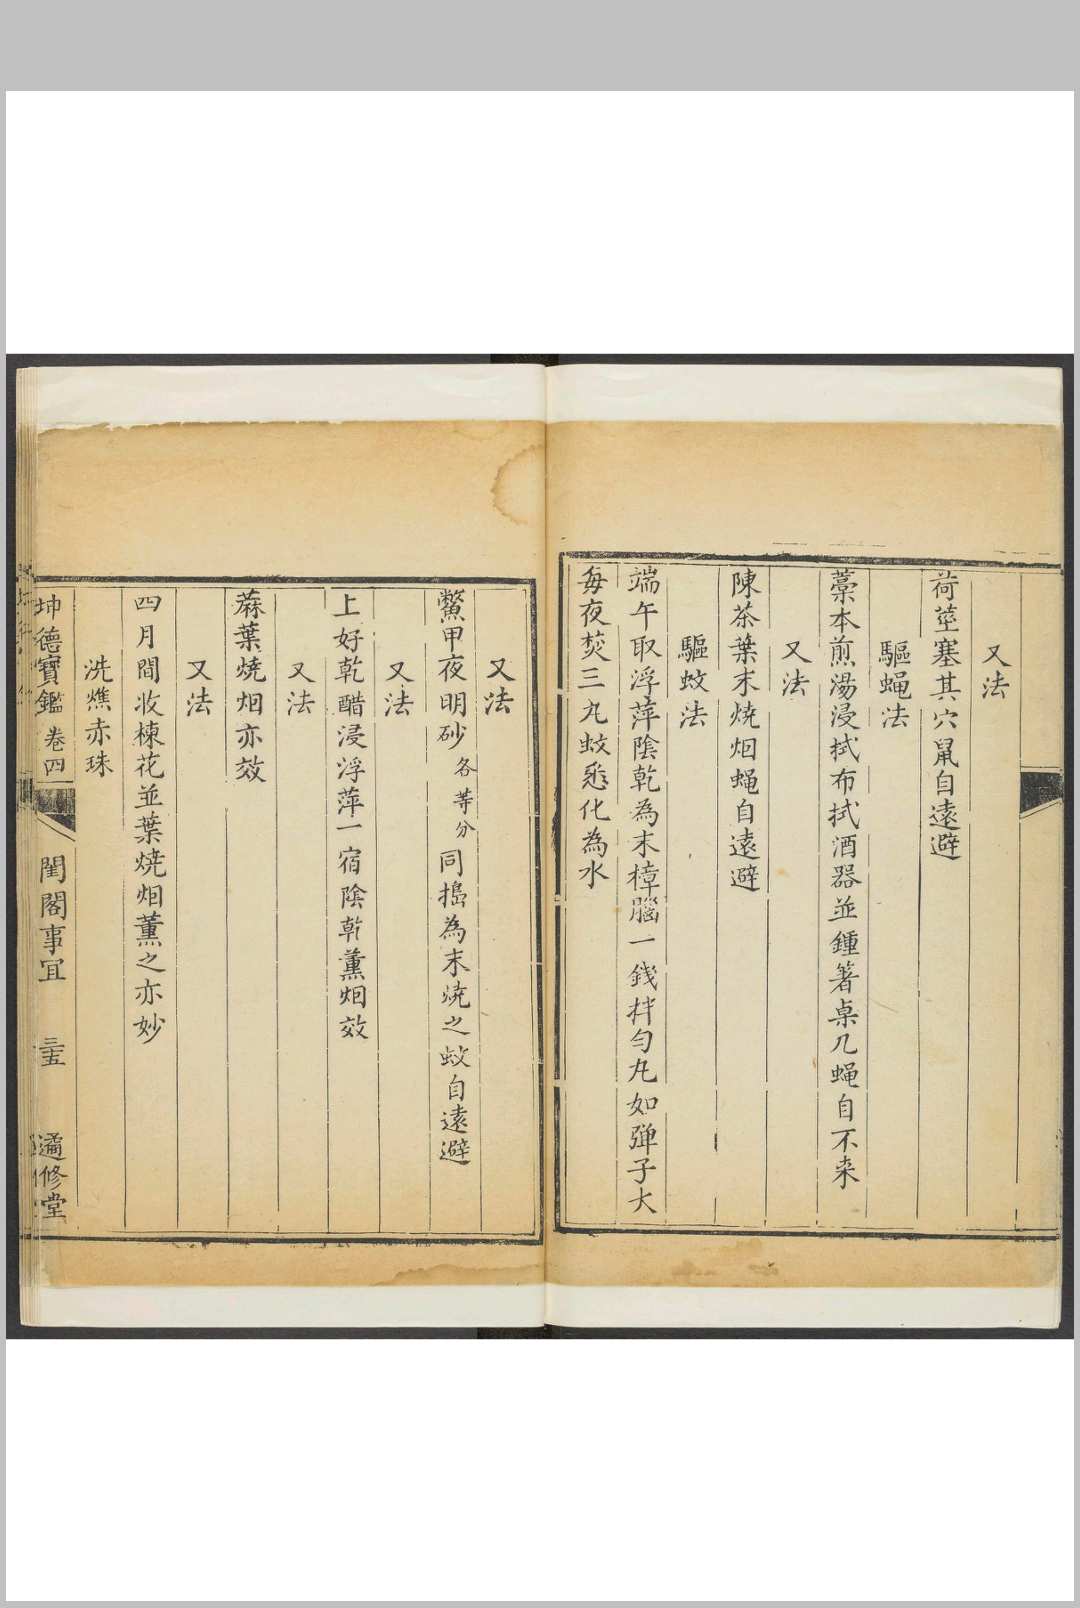 又法
荷莖塞其穴鼠自遠避
驅蝇法
藁本煎湯浸拭布拭酒器並鍾箸桌几蝇自不来
又法
陳茶葉末燒烟蝇自遠避
驅蚊法
端午取浮萍陰乾為末樟腦一錢拌勻丸如弹子大
每夜焚三丸蚊悉化為水
又法
鱉甲夜明砂各等分同搗為末燒之蚊自遠避
又法
上好乾醋浸浮萍一宿陰乾薰烟效
又法
蔴葉燒烟亦效
又法
四月間收楝花並葉燒烟薰之亦妙
洗燋赤珠
坤德寶鑑 卷四 閨閣事宜 三五 遹修堂